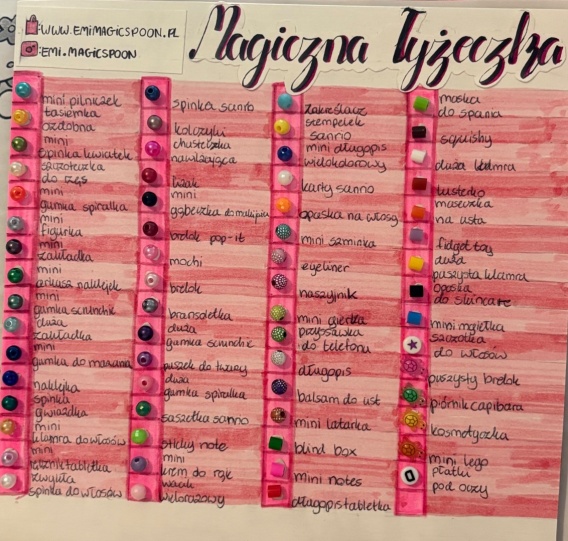 :WWW.EMIMAGICSPOON.PL
:EMI.MAGICSPOON
Magiczna Łyżeczka
mini pilniczek
tasiemka
ozdobna
mini
spinka kwiatek
szczoteczka
do rzęs
mini
gumka spiralka
mini
figurka
mini
zakładka
mini
arkusz naklejek
mini
gumka scrunchie
duża
zakładka
mini
gumka do mazania
naklejka
spinka
gwiazdka
mini
klamra do włosów
mini
tabletka
zwykła
spinka do włosów
spinka sanrio
kolczyki
chusteczka
nawilżająca
mini
gąbeczka do makijażu
brelok pop-it
mochi
brelok
bransoletka
duża
gumka scrunchie
puszek do twarzy
duża
gumka spiralka
saszetka sanrio
sticky note
mini
krem do rąk
wielorazowy
zakreślacz
stempelek
sanrio
mini długopis
wielokolorowy
karty sanrio
opaska na włosy
mini
eyeliner
naszyjnik
mini gierka
przyssawka
do telefonu
długopis
balsam do ust
mini latarka
blind box
mini notes
długopis tabletka
maska
do spania
squishy
duża klamra
lusterko
maseczka
na usta
fidget toy
duża
puszysta klamra
opaska
do skincare
mini mgiełka
szczotka
do włosów
puszysty brelok
piórnik capibara
kosmetyczka
mini lego
płatki
pod oczy